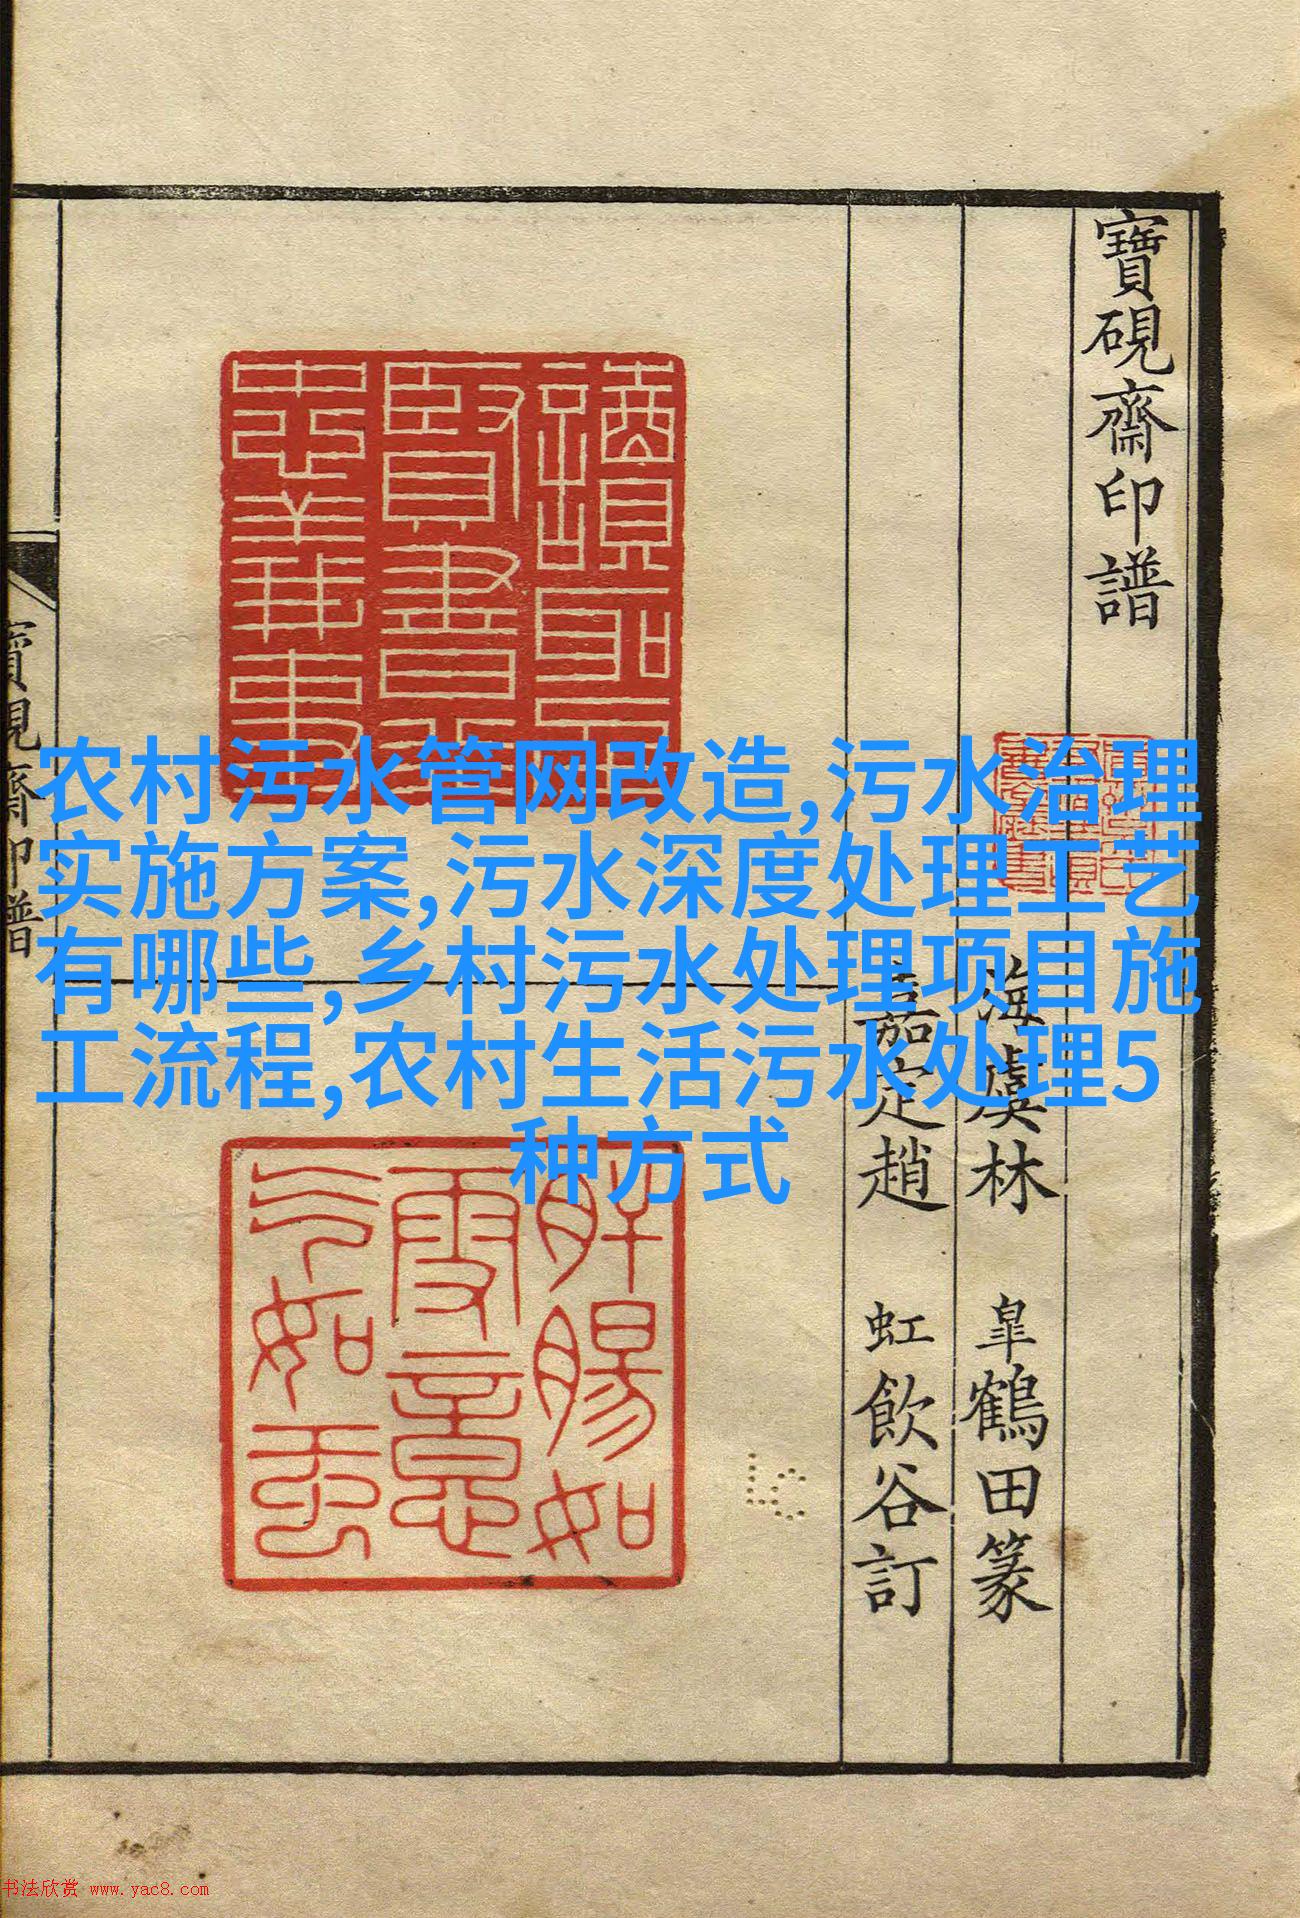 寶硯齋印譜
海虞林 皐鶴田篆
嘉定趙 虹飲谷訂
讀聖
賢書行
忠義事
肝腸如
雪意
氣如虹
农村污水管网改造,污水治理
实施方案,污水深度处理工艺
有哪些,乡村污水处理项目施
工流程,农村生活污水处理5
种方式
寶硯齋印譜
书法欣赏 www.yac8.com